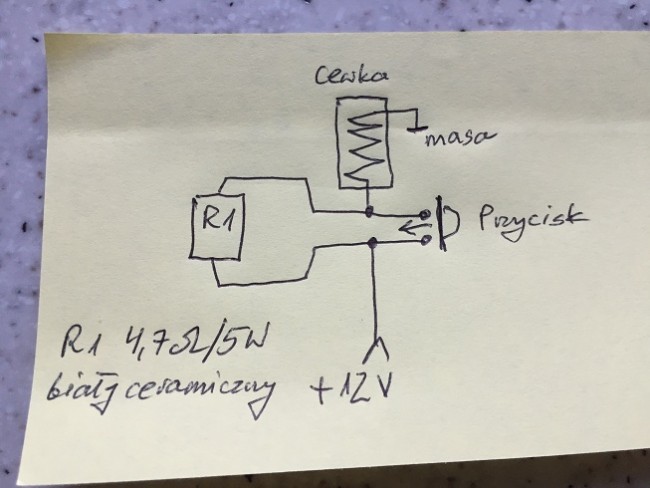 Cewka
masa
R1
Przycisk
R1 4,7Ω/5W
biały ceramiczny
+12V